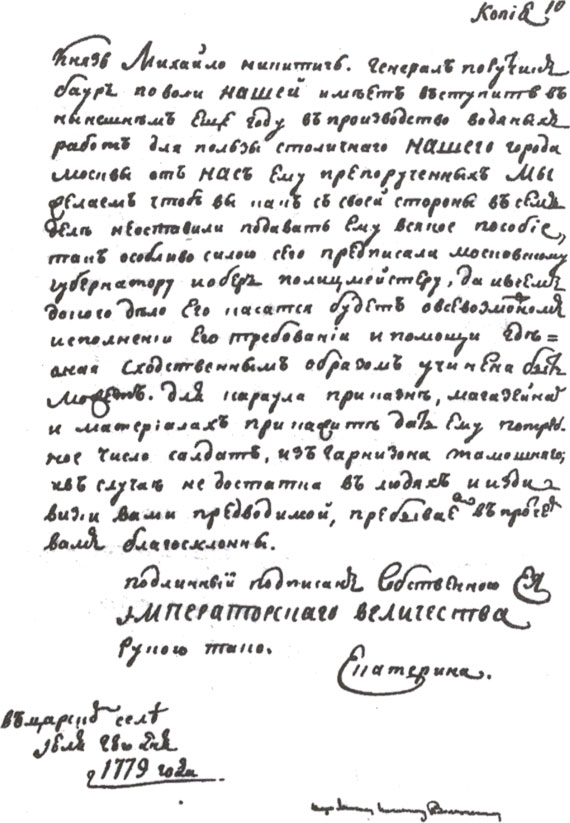 Копiя 10
Князь Михайло никитичь. Генералъ порутчикъ
бауръ по воли нашей имѣетъ вступить въ
нынешнемъ еще году въ производство водяныхъ
работъ для пользы столичнаго нашего города
москвы отъ насъ Ему препорученныхъ Мы
желаемъ чтобъ вы какъ съ своей стороны въ семъ
дѣлѣ неоставили подавать Ему всякое пособiе,
такъ особливо силою сего предписали московскому
губернатору и оберъ полицмейстеру, да и всемъ
до кого дѣло Его касатся будетъ о всевозможномъ
исполненiи Его требованiи и помощи Едѣ=
лная сходственнымъ образомъ учинена быть
можетъ. для караула при казнѣ, магазейнахъ
и матерiалахъ прикажите дать Ему потреб.
ное число салдатъ, изъ гарнизона тамошняго;
и въ случаѣ не достатка въ людяхъ и изди-
визiи вами предводимой, пребываемъ въ протчемъ
вамъ благосклонны.
подлинный подписанъ Собственною Ея
iмператорскаго величества
рукою тако.
Екатерина.
въ царскомъ селѣ
iюля 28го дня
1779 года